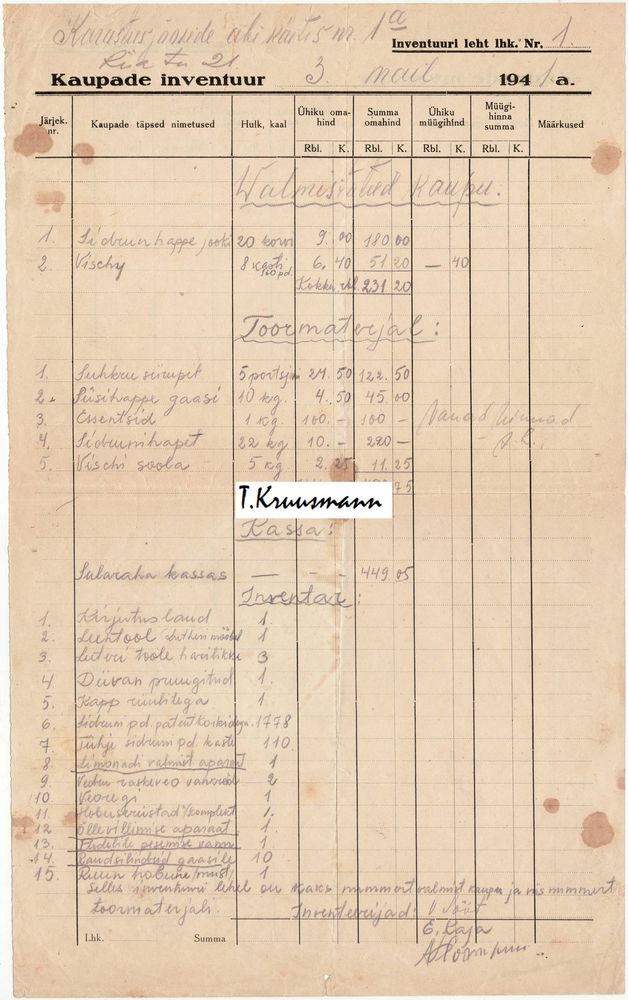 Karastusjookide abi käitis nr. 1a
Inventuuri leht lhk. Nr. 1.
Riia tn 21
Kaupade inventuur 3. mail 1941 a.
Järjek. nr. Kaupade täpsed nimetused Hulk, kaal Ühiku oma-hind Summa omahind Ühiku müügihind Müügi-hinna summa Märkused
Rbl. K. Rbl. K. Rbl. K. Rbl. K.
kaupu.
1. Sidrunhappe jooki 20 korvi 9. 00 180 00
2. Vischy 8 kasti 160 pd. 6. 40 51 20 — 40
Kokku rbl. 231 20
Toormaterjal:
1. Suhkru siirupit 5 portsjon 24. 50 122. 50
2. Süsihappe gaasi 10 kg. 4. 50 45. 00
3. Essentsid 1 kg. 100. – 100 – Vanad hinnad
4. Sidrunihapet 22 kg 10. – 220 –
5. Vischi soola 5 kg. 2. 25 11. 25
75
T.Kruusmann
Kassa:
Sularaha kassas — – – 449. 05
Inventar:
1. Kirjutuslaud 1.
2. Leentool 1
3. 3
4. Diivan pruugitud 1.
5. Kapp 1.
6. Sidruni pd. patent korkidega. 1778
7. Tühje sidruni pd. kaste 110.
8. Limonadi valmist. aparaat 1
9. Vedru raskeveo vankrid 2
10. Veoregi 1
11. Hobuseriistad komplekt 1.
12. Õllevillimise aparaat 1.
13. Pudelite pesemise vann 1
14. Raudsilindrid gaasile 10
15. Ruun hobune /must/ 1
Selles inventuuri lehel on kaks nummert valmist kaupa ja viis nummert
toormaterjali. Inventeerijad:
E. Kaja
Lhk. Summa